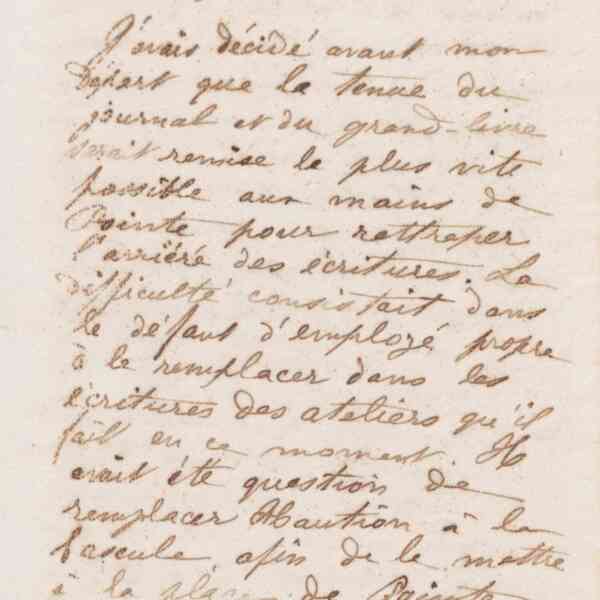 J'avais décidé avant mon
Départ que la tenue du
journal et du grand-livre
serait remise le plus vite
possible aux mains de
Pointe pour rattraper
l'arriéré des écritures. La
difficulté consistait dans
le défaut d'employé propre
à le remplacer dans les
écritures des ateliers qu'il
fait en ce moment. Il
avait été question de
remplacer à la
bascule, afin de le mettre
à la place de Pointe